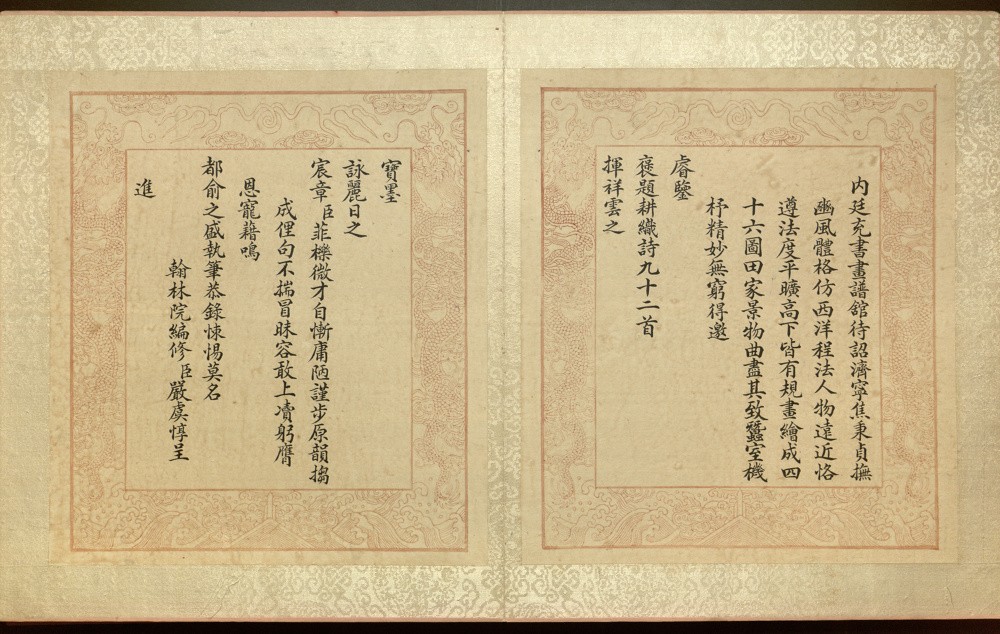 內廷充書畫譜舘待詔濟寧焦秉貞撫
豳風體格仿西洋程法人物遠近恪
遵法度平曠高下皆有規畫繪成四
十六圖田家景物曲盡其致蠶室機
杼精妙無窮得邀
睿鑒
褒題耕織詩九十二首
揮祥雲之
寶墨
詠麗日之
宸章臣菲櫟微才自慚庸陋謹步原韻搊
成俚句不揣冒昧容敢上凟躬膺
恩寵藉鳴
都俞之盛執筆恭錄悚惕莫名
翰林院編修臣嚴虞惇呈
進